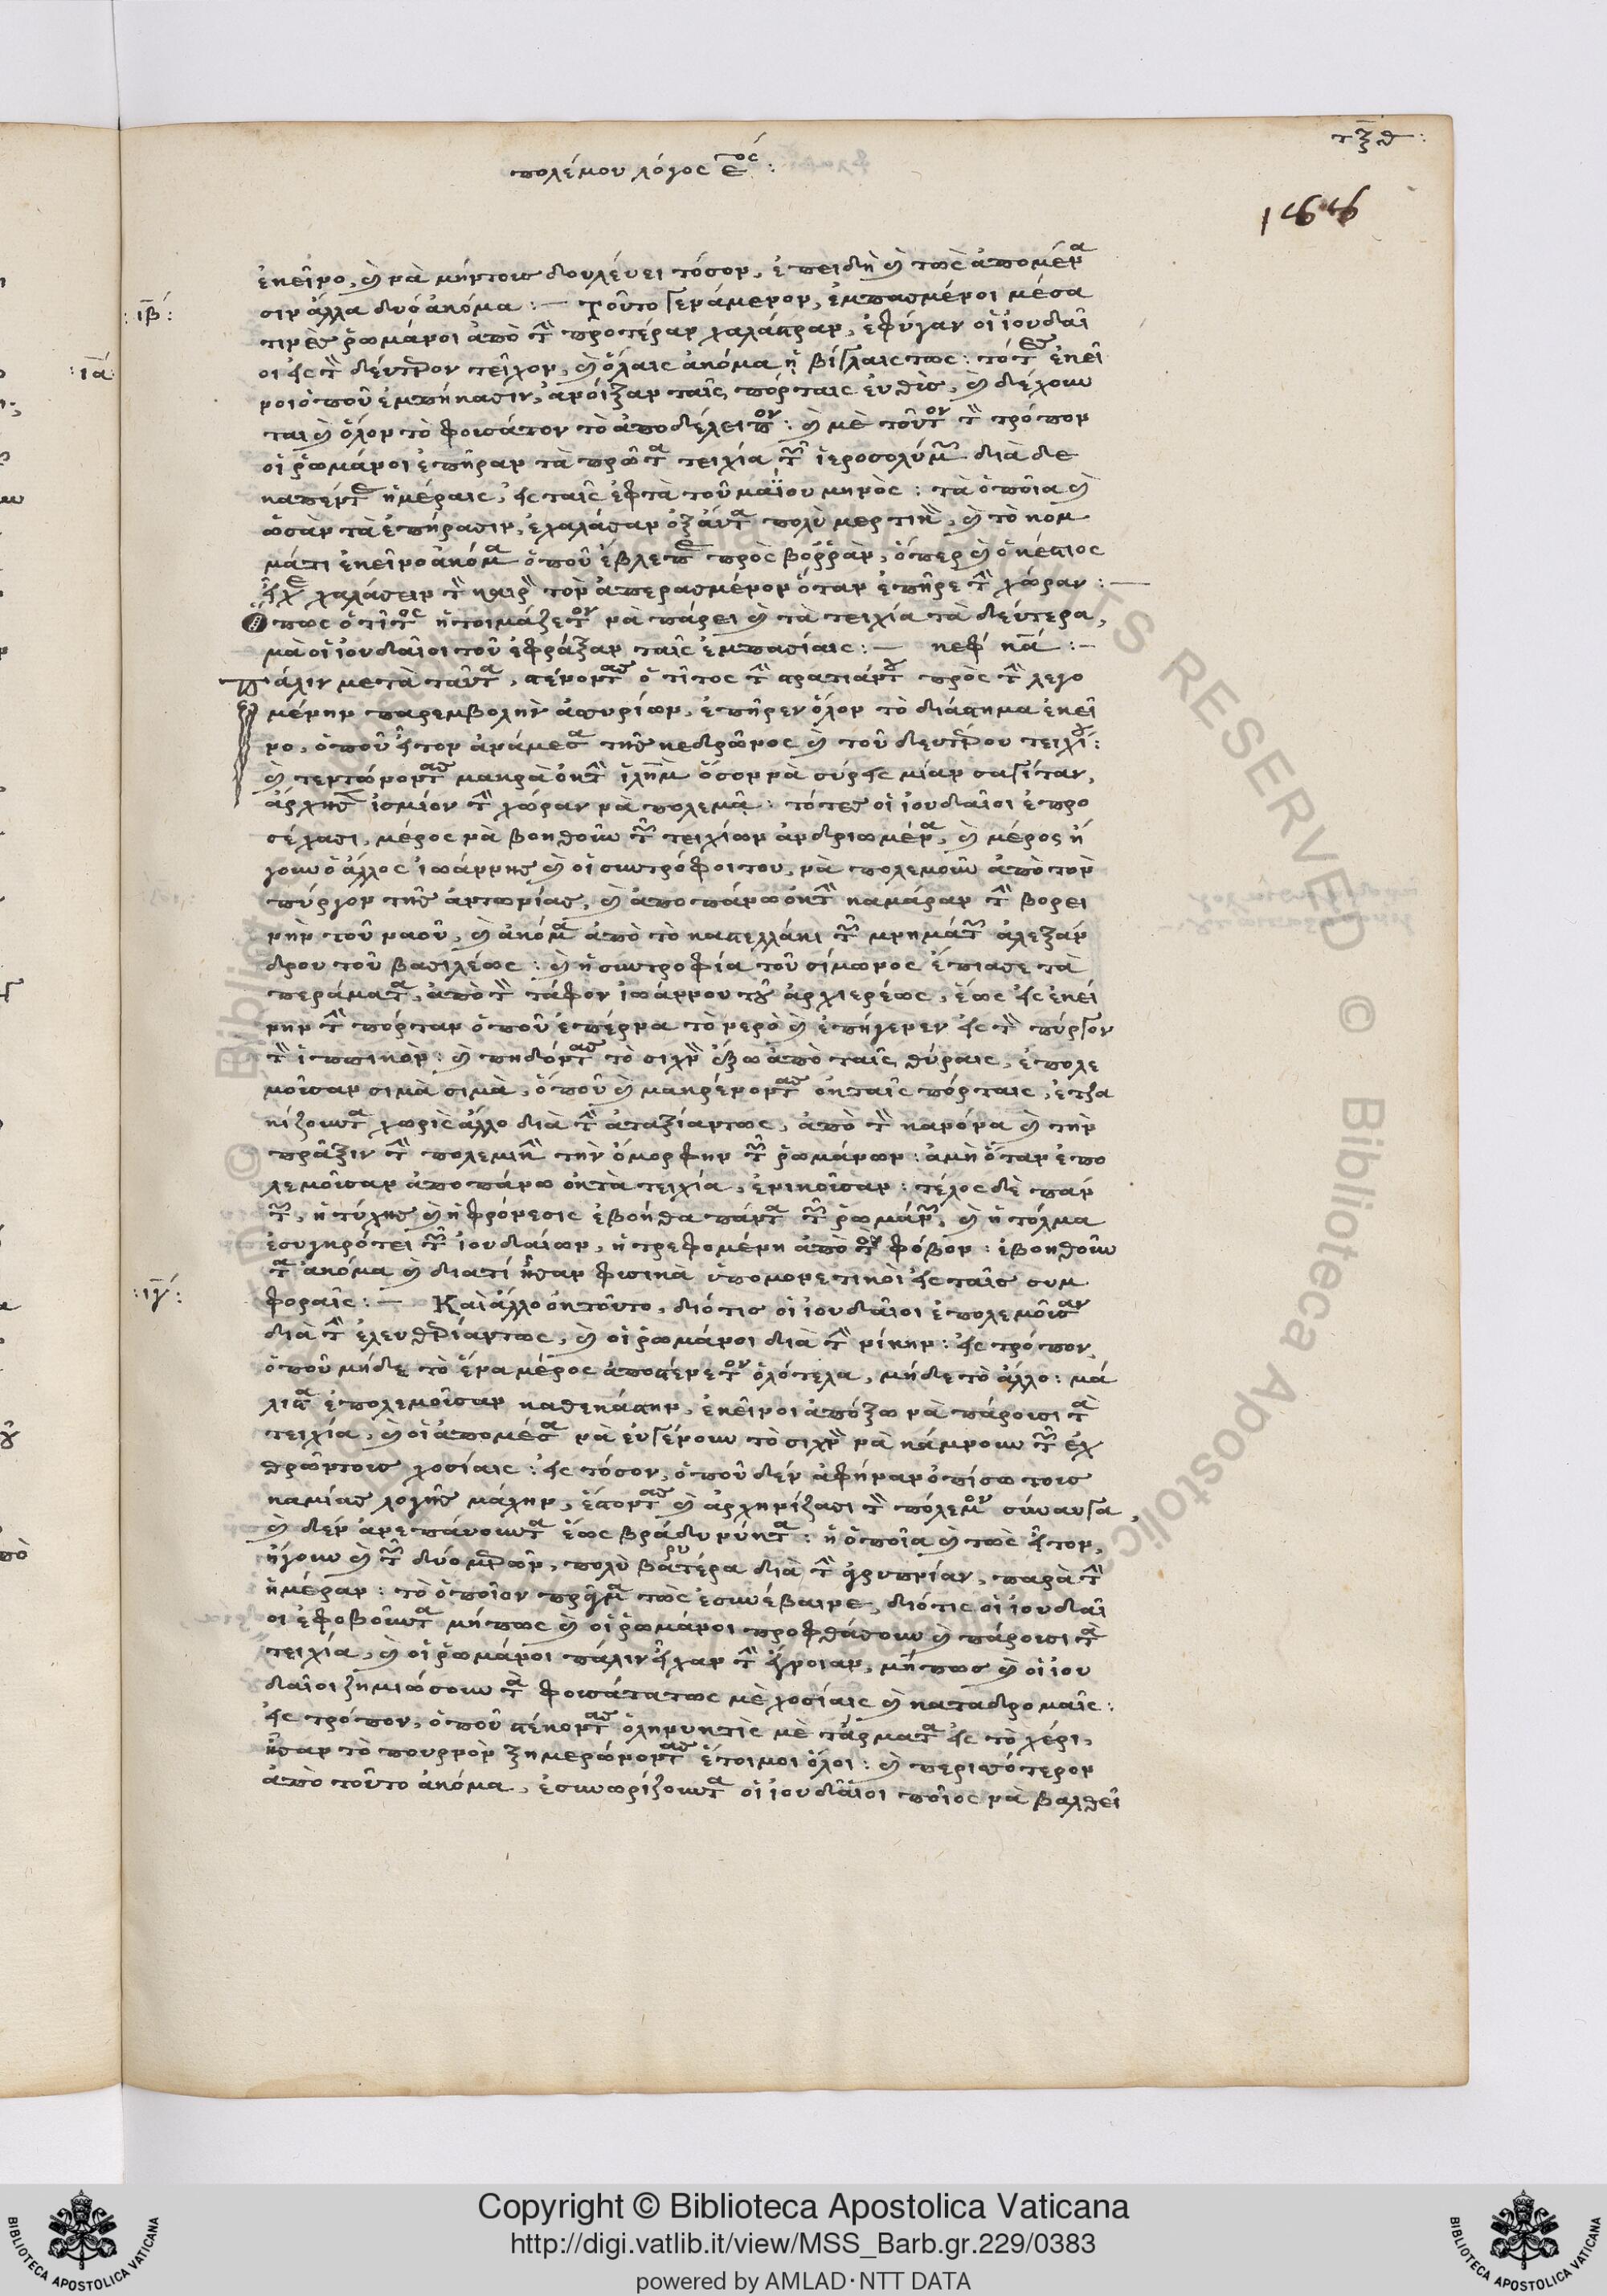 τξθ:
πολέμου λόγος ε^ος:
ἐκεῖνο, καὶ νὰ μήντους δουλεύει τόσον, ἐπειδὴ καὶ τὼς ἀπομέν^α
σιν ἄλλα δυὸ ἀκόμα: — Τοῦτο γενάμενον, ἐμπασμένοι μέσα
:ιβ:
τινὲς ῥωμάνοι ἀπὸ τὴν προτέραν χαλάστραν, ἐφύγαν οἱ ἰουδαῖ
οι εἰς τὸ δεύτερον τεῖχον, καὶ ὅλαις ἀκόμα ἡ βίγλαις τως: τότες ἐκεῖ
:ια:
νοι ὁποῦ ἐμπήκασιν, ἀνοίξαν ταῖς πόρταις εὐθὺς, καὶ δέχουν
ται καὶ ὅλον τὸ φουσάτον τὸ ἀποδέλειπον: καὶ μὲ τοῦτον τὸν τρόπον
οἱ ῥωμάνοι ἐπῆραν τὰ πρῶτα τειχία τῶν ἱεροσολύμων διὰ δε
καπέντε ἡμέραις, εἰς ταῖς ἑφτὰ τοῦ μαΐου μηνὸς: τὰ ὁποῖα καὶ
ὡσὰν τὰ ἐπήρασιν, ἐχαλάσαν ἐξ αὐτὰ πολὺ μερτικὸν, καὶ τὸ κομ
μάτι ἐκεῖνο ἀκόμα ὁποῦ ἔβλεπε πρὸς βορρὰν, ὅπερ καὶ ὁ κέστιος
εἶχε χαλάσειν τὸν καιρὸν τὸν ἀπερασμένον ὅταν ἐπῆρε τὴν χώραν: —
Ὅπως ὁ τίτος ἡτοιμάζετον νὰ πάρει καὶ τὰ τειχία τὰ δεύτερα,
μὰ οἱ ἰουδαῖοι τοῦ ἐφράξαν ταῖς ἐμπασίαις: — κεφ κα: —
Πάλιν μετὰ ταῦτα, στένοντας ὁ τίτος τὴν στρατιάντου πρὸς τὴν λεγο
μένην παρεμβολὴν ἀσυρίων, ἐπῆρεν ὅλον τὸ διάστημα ἐκεῖ
νο, ὁποῦ ἦτον ἀνάμεσα τῆς κεδρῶνος καὶ τοῦ δευτέρου τειχίου:
καὶ τεντώνοντας μακρὰ ἐκ τὴν ἱλημ ὅσον νὰ σύρει μίαν σαγίταν,
ἀρχησε ἰσμίον τὴν χώραν νὰ πολεμᾶ: τότες οἱ ἰουδαῖοι ἐπρο
σέχασι, μέρος νὰ βοηθοῦν τῶν τειχίων ἀνδριωμένα, καὶ μέρος ἤ
γουν ὁ ἄλλος ἰωάννης καὶ οἱ συντρόφοι του, νὰ πολεμοῦν ἀπὸ τὸν
πύργον τῆς ἀντωνίας, καὶ ἀποπάνω ἐκ τὴν καμάραν τὴν βορει
νὴν τοῦ ναοῦ, καὶ ἀκόμα ἀπὸ τὸ καστελλάκι τῶν μνημάτων ἀλεξάν
δρου τοῦ βασιλέως: καὶ ἡ συντροφία τοῦ σίμωνος ἔπιασε τὰ
περάματα, ἀπὸ τὸν τάφον ἰωάννου τοῦ ἀρχιερέως, ἕως εἰς ἐκεί
νην τὴν πόρταν ὁποῦ ἐπέρνα τὸ νερὸ καὶ ἐπήγενεν εἰς τὸν πύργον
τὸν ἱππικὸν: καὶ πηδόντας τὸ σιχνὸν ἔξω ἀπὸ ταῖς θύραις, ἐπολε
μοῦσαν σιμὰ σιμὰ, ὁποῦ καὶ μακρένοντας ἐκ ταῖς πόρταις, ἐτζα
κίζουντα χωρὶς ἄλλο διὰ τὴν ἀταξίαντως, ἀπὸ τὸν κανόνα καὶ τὴν
πρᾶξιν τὴν πολεμικὴν τὴν ὄμορφην τῶν ῥωμάνων: ἀμὴ ὅταν ἐπο
λεμοῦσαν ἀποπάνω ἐκ τὰ τειχία, ἐνικοῦσαν: τέλος δὲ πάν
των, ἡ τύχης καὶ ἡ φρόνεσις ἐβοήθα πάντα τῶν ῥωμάνων, καὶ ἡ τόλμα
ἐσυγκρότει τῶν ἰουδαίων, ἡ τρεφομένη ἀπὸ τὸν φόβον: ἐβοηθοῦν
τα ἀκόμα καὶ διατί ἦσαν φυσικὰ ὑπομονετικοὶ εἰς ταῖς συμ
:ιγ:
φοραῖς: — Καὶ ἄλλο ἐκ τοῦτο, διότις οἱ ἰουδαῖοι ἐπολεμοῦσαν
διὰ τὴν ἐλευθερίαντως, καὶ οἱ ῥωμάνοι διὰ τὴν νίκην: εἰς τρόπον,
ὁποῦ μήδε τὸ ἕνα μέρος ἀποστένετον ὁλότελα, μήδε τὸ ἄλλο: μά
λιστα ἐπολεμοῦσαν καθεκάστην, ἐκεῖνοι ἀπόξω νὰ πάρουσι τὰ
τειχία, καὶ οἱ ἀπομέσα νὰ εὐγένουν τὸ σιχνὸν νὰ κάμνουν τῶν ἐχ
θρῶντους χοσίαις: εἰς τόσον, ὁποῦ δὲν ἀφήναν ὀπίσω τους
καμίας λογῆς μάχην, ἔστοντας καὶ ἀρχηνίζασι τὸν πόλεμον σύναυγα,
καὶ δὲν ἀνεπάνουντα ἕως βράδυ νύκτα: ἡ ὁποῖα καὶ τὼς ἦτον,
ἤγουν καὶ τῶν δυόμερῶν, πολὺ βαρυτέρα διὰ τὴν ἀγρυπνίαν, παρὰ τὴν
ἡμέραν: τὸ ὁποῖον πράγμα τὼς ἐσυνέβαινε, διότις οἱ ἰουδαῖ
οι ἐφοβοῦντα μήπως καὶ οἱ ῥωμάνοι προφθάσουν καὶ πάρουσι τὰ
τειχία, καὶ οἱ ῥωμάνοι πάλιν εἶχαν τὴν ἔγνοιαν, μήπως καὶ οἱ ἰου
δαῖοι ζημιώσουν τὰ φουσάτατως μὲ χοσίαις καὶ καταδρομαῖς:
εἰς τρόπον, ὁποῦ στέκοντας ὁληνυκτὶς μὲ τάρματα εἰς τὸ χέρι,
ἦσαν τὸ πουρνὸν ξημερώνοντας ἕτοιμοι ὅλοι: καὶ περισσότερον
ἀπὸ τοῦτο ἀκόμα, ἐσυνορίζουντα οἱ ἰουδαῖοι ποῖος νὰ βαλθεῖ
Copyright © Biblioteca Apostolica Vaticana
http://digi.vatlib.it/view/MSS_Barb.gr.229/0383
powered by AMLAD·NTT DATA
BIBLIOTECA APOSTOLICA VATICANA
BIBLIOTECA APOSTOLICA VATICANA